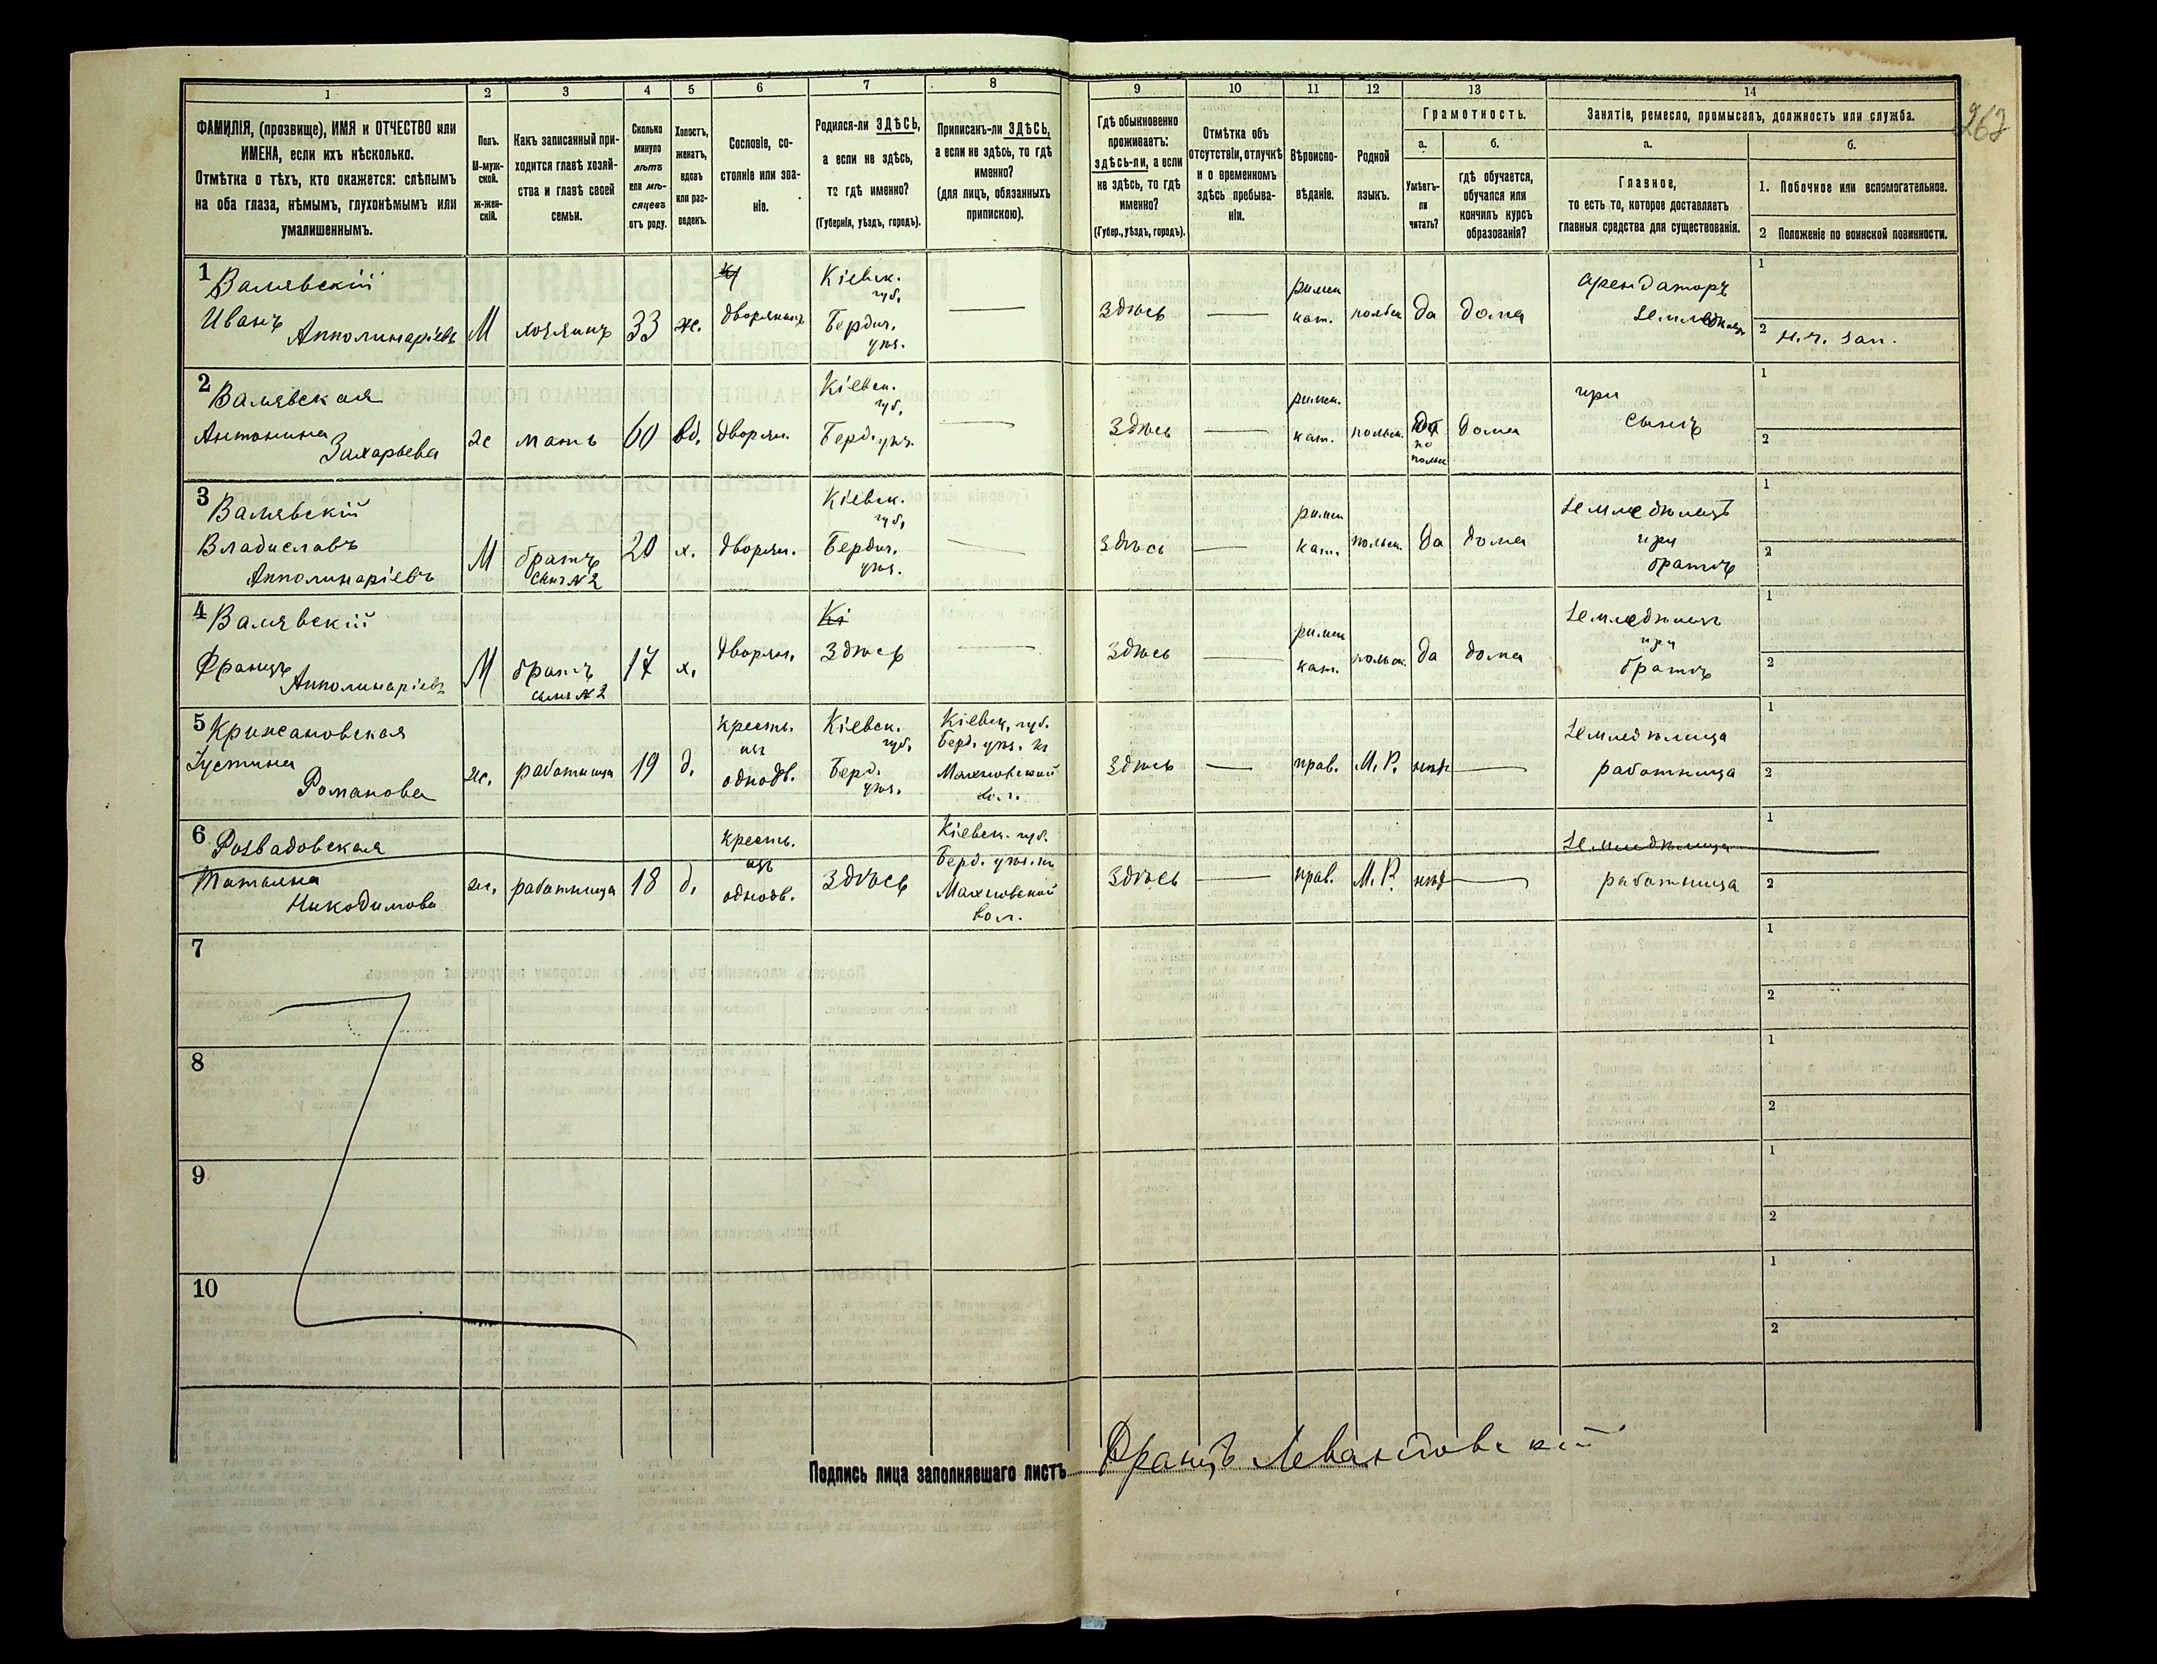 262
1 2 3 4 5 6 7 8 9 10 11 12 13 14
ФАМИЛІЯ, (прозвище), ИМЯ и ОТЧЕСТВО или
ИМЕНА, если ихъ нѣсколько.
Отмѣтка о тѣхъ, кто окажется: слѣпымъ
на оба глаза, нѣмымъ, глухонѣмымъ или
умалишеннымъ.
Полъ.
М-муж-
ской.
ж-жен-
скій.
Какъ записанный при-
ходится главѣ хозяй-
ства и главѣ своей
семьи.
Сколько
минуло
лѣтъ
или мѣ-
сяцевъ
отъ роду.
Холостъ,
женатъ,
вдовъ
или раз-
веденъ.
Сословіе, со-
стояніе или зва-
ніе.
Родился-ли ЗДѢСЬ,
а если не здѣсь,
то гдѣ именно?
(Губернія, уѣздъ, городъ).
Приписанъ-ли ЗДѢСЬ,
а если не здѣсь, то гдѣ
именно?
(для лицъ, обязанныхъ
припискою).
Гдѣ обыкновенно
проживаетъ:
здѣсь-ли, а если
не здѣсь, то гдѣ
именно?
(Губер., уѣздъ, городъ).
Отмѣтка объ
отсутствіи, отлучкѣ
и о временномъ
здѣсь пребыва-
ніи.
Вѣроиспо-
вѣданіе.
Родной
языкъ.
Грамотность.
а.
Умѣетъ-
ли
читать?
б.
гдѣ обучается,
обучался или
кончилъ курсъ
образованія?
Занятіе, ремесло, промыселъ, должность или служба.
а.
Главное,
то есть то, которое доставляетъ
главныя средства для существованія.
б.
1. Побочное или вспомогательное.
2 Положеніе по воинской повинности.
1 Валявскій
Иванъ
Апполинаріевъ
М
хозяинъ
33
ж.
дворянинъ
Кіевск.
губ.
Бердич.
уѣз.
здѣсь
римск
кат.
польск
да
дома
арендаторъ
1
2 н. ч. зап.
2 Валявская
Антонина
Захарьева
ж
мать
60
вд.
дворян.
Кіевск.
губ.
Берд. уѣз.
здѣсь
римск.
кат.
польск.
да
по
польс
дома
при
сынѣ
1
2
3 Валявскій
Владиславъ
Апполинаріевъ
М
братъ
сынъ №2
20
х.
дворян.
Кіевск.
губ.
Бердич.
уѣз.
здѣсь
римск
кат.
польск.
да
дома
земледѣлецъ
при
братѣ
1
2
4 Валявскій
Францъ
Апполинаріевъ
М
братъ
сынъ №2
17
х.
дворян.
Кі
здѣсь
здѣсь
римск
кат.
польск.
да
дома
земледѣлецъ
при
братѣ
1
2
5 Крижановская
Устина
Романова
ж.
работница
19
д.
кресть.
изъ
однодв.
Кіевск.
губ.
Берд.
уѣз.
Кіевск. губ.
Берд. уѣз. къ
Махновской
вол.
здѣсь
прав.
М. Р.
нѣтъ
земледѣлица
работница
1
2
6 Розвадовская
Татьяна
Никодимова
ж.
работница
18
д.
кресть.
изъ
однодв.
здѣсь
Кіевск. губ.
Берд. уѣз. къ
Махновской
вол.
здѣсь
прав.
М. Р.
нѣтъ
земледѣлица
работница
1
2
7
1
2
8
1
2
9
1
2
10
1
2
Подпись лица заполнявшаго листъ
Францъ